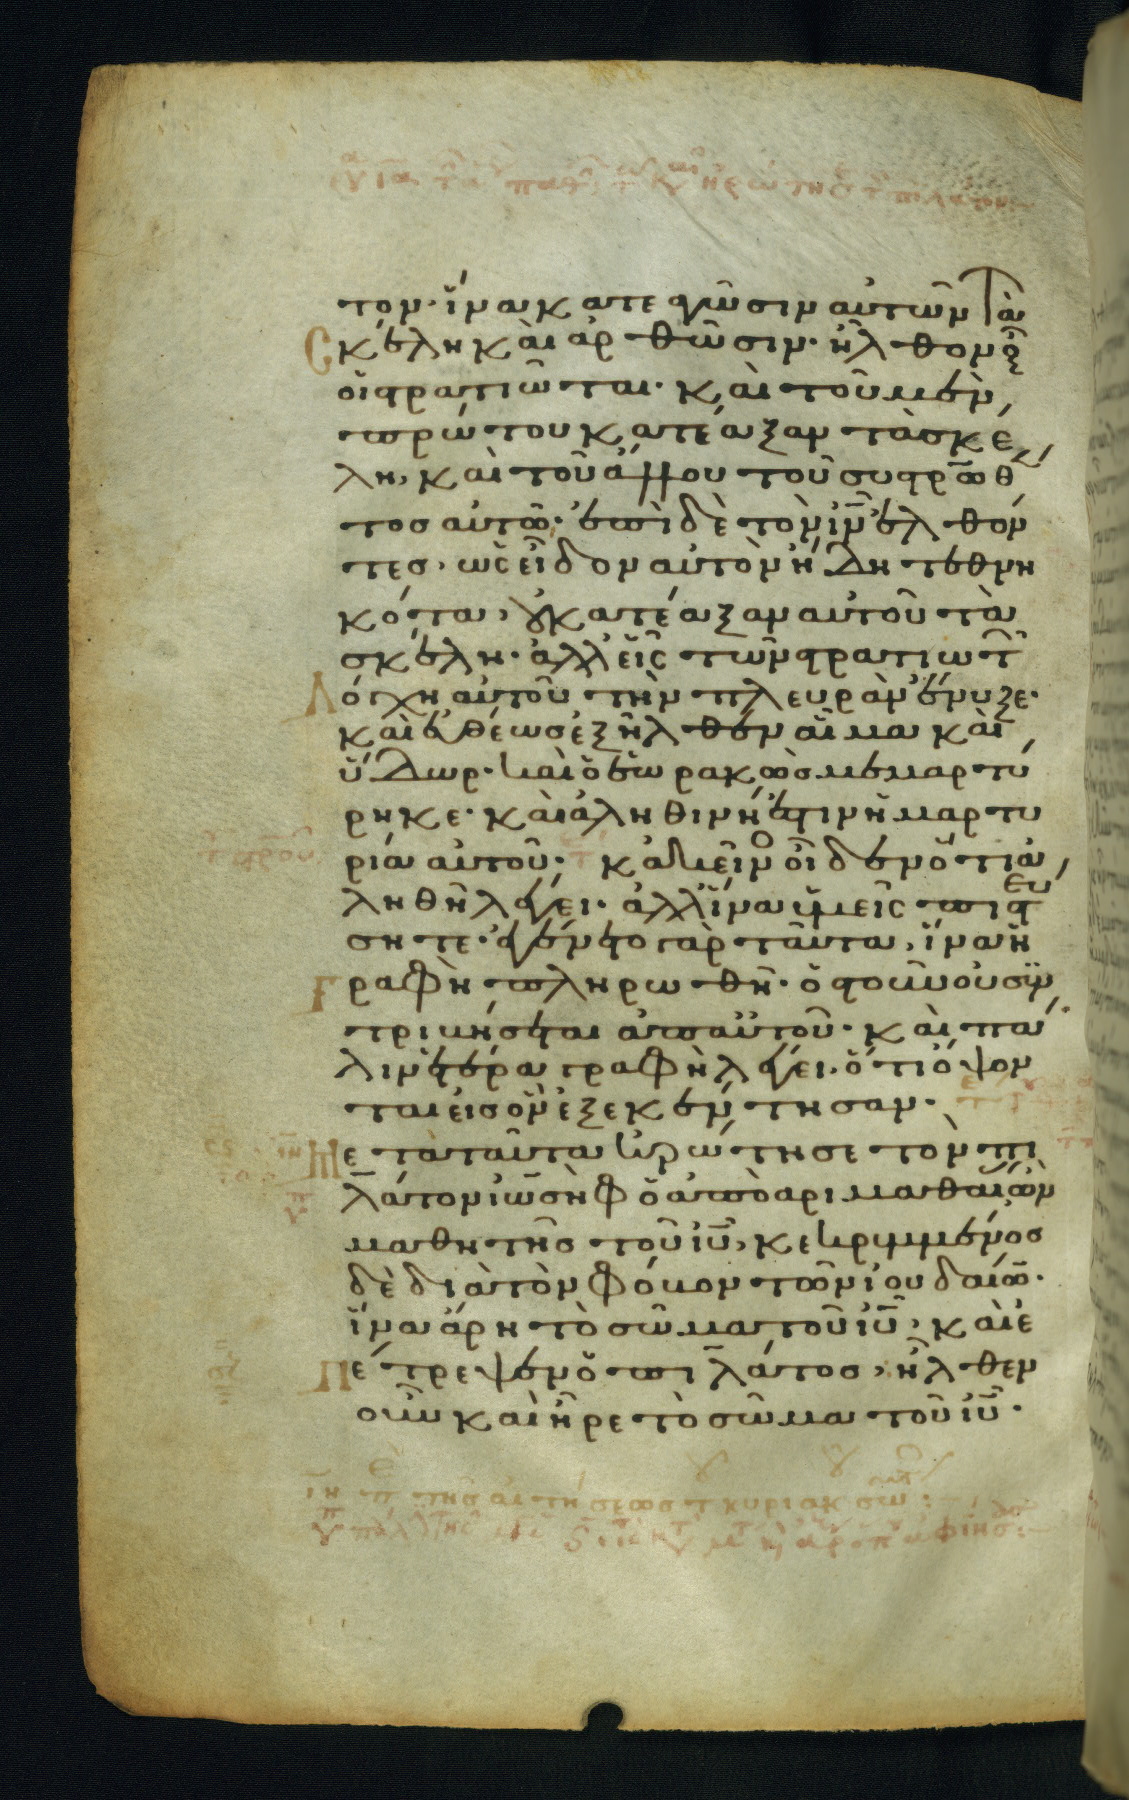 τον· ἵνα κατεαγῶσιν αὐτῶν τὰ
Σκέλη καὶ ἀρθῶσιν· ἦλθον οὖν
οἱ στρατιῶται· καὶ τοῦ μὲν
πρώτου κατέαξαν τὰ σκέ
λη, καὶ τοῦ ἄλλου τοῦ συσταυρωθέν
τος αὐτῶ· ἐπὶ δὲ τὸν ιν ἐλθόν
τες, ὡς εἶδον αὐτὸν ἤδη τεθνη
κότα, οὐ κατέαξαν αὐτοῦ τὰ
σκέλη· ἀλλ εἷς τῶν στρατιωτῶν
Λόγχη αὐτοῦ τὴν πλευρὰν ἔνυξε·
καὶ εὐθέως ἐξῆλθεν αἷμα καὶ
ὕδωρ· καὶ ὁ ἑωρακὼς μεμαρτύ
ρηκε· καὶ ἀληθινή ἐστιν ἡ μαρτυ
ρία αὐτοῦ· κἀκεῖνος οἶδεν ὅτι ἀ
ληθῆ λέγει· ἀλλ ἵνα ὑμεῖς πιστεύ
σητε· ἐγένετο γὰρ ταῦτα, ἵνα ἡ
Γραφὴ πληρωθῆ· ὀστοῦν οὐ συν
τριβήσεται ἀπ αὐτοῦ· καὶ πά
λιν ἑτέρα γραφὴ λέγει· ὅτι ὄψον
ται εἰς ὃν ἐξεκέντησαν·
Μετὰ ταῦτα ἠρώτησε τὸν πι
λάτον ἰωσὴφ ὁ ἀπὸ ἀριμαθαίας ὢν
μαθητὴς τοῦ ιυ, κεκρυμμένος
δὲ διὰ τὸν φόβον τῶν ἰουδαίων·
ἵνα ἄρη τὸ σῶμα τοῦ ιυ, καὶ ἐ
Πέτρεψεν ὁ πιλάτος, ἦλθεν
οὖν καὶ ἦρε τὸ σῶμα τοῦ ιυ·